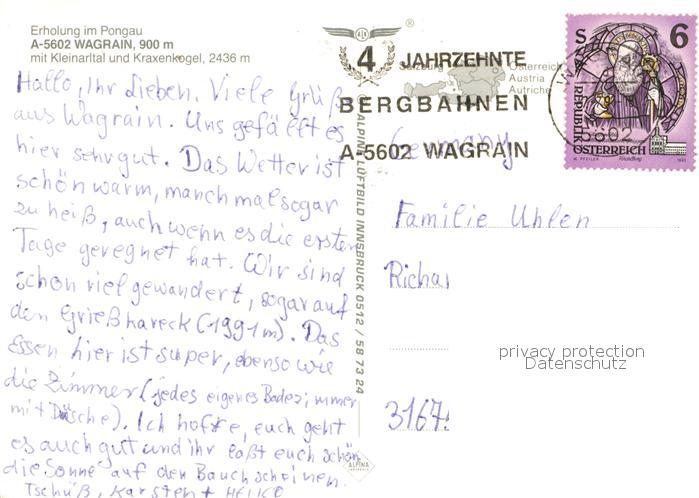 Erholung im Pongau
A-5602 WAGRAIN, 900 m
mit Kleinarltal und Kraxenkogel, 2436 m
Hallo, Ihr Lieben. Viele Grüß
aus Wagrain. Uns gefällt es
hier sehr gut. Das Wetter ist
schön warm, manchmal sogar
zu heiß, auch wenn es die ersten
Tage geregnet hat. Wir sind
schon viel gewandert, sogar auf
den Grießkareck (1991m). Das
Essen hier ist super, ebenso wie
die Zimmer (jedes eigenes Badezimmer
mit Dusche). Ich hoffe, euch geht
es auch gut und ihr laßt euch schön
die Sonne auf den Bauch scheinen.
Tschüß, Karsten + HEIKO
ALPINE LUFTBILD INNSBRUCK 0512 / 58 73 24
ALPINE
®
4 JAHRZEHNTE
BERGBAHNEN
A-5602 WAGRAIN
Österreich
Austria
Autriche
Germany
S 6
REPUBLIK
ÖSTERREICH
5602
Familie Uhlen
Richa
3167
privacy protection
Datenschutz